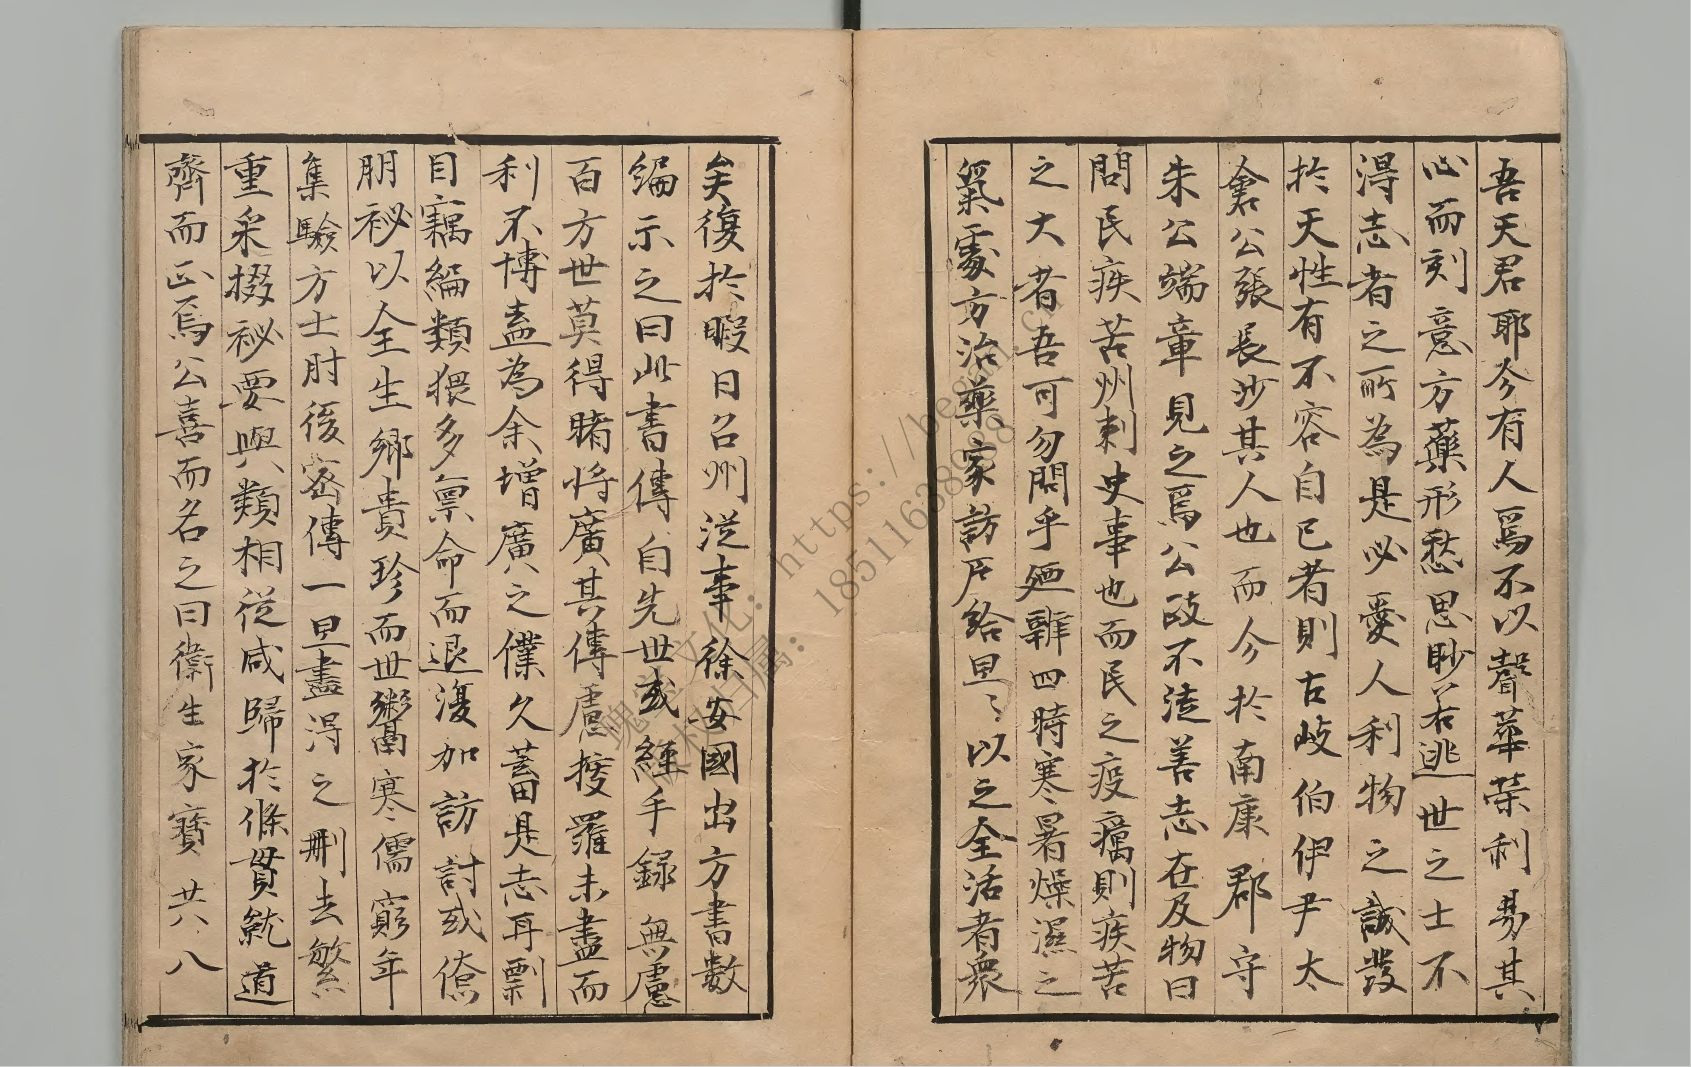 吾天君耶今有人焉不以聲華榮利易其
心而刻意方藥形愁思眇若逃世之士不
淂志者之所為是必愛人利物之誠發
於天性有不容自已者則古岐伯伊尹太
倉公張長沙其人也而今於南康郡守
朱公端章見之焉公政不徒善志在及物曰
問民疾苦州刺史事也而民之疫癘則疾苦
之大者吾可勿問乎廼辨四時寒暑燥濕之
氣處方治藥家訪戶給旦旦以之全活者衆
矣復於暇日召州從事徐安國出方書數
編示之曰此書傳自先世或經手録無慮
百方世莫得睹將廣其傳慮搜羅未盡而
利不博盍為余增廣之僕久蓄是志再剽
目竊編類猥多稟命而退復加訪討或僚
朋祕以全生鄉貴珍而世鬻寒儒窮年
集驗方士肘後密傳一旦盡淂之刪去繁
重采掇祕要與類相從咸歸於條貫就道
齊而正焉公喜而名之曰衛生家寶共八
魏塘文化：https://began.cc
版权归属：18511638988